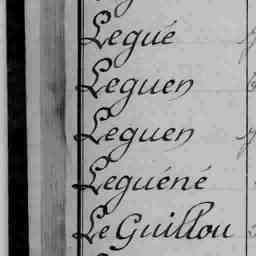 Legué
Leguen
Leguen
Leguéné
Le Guillou